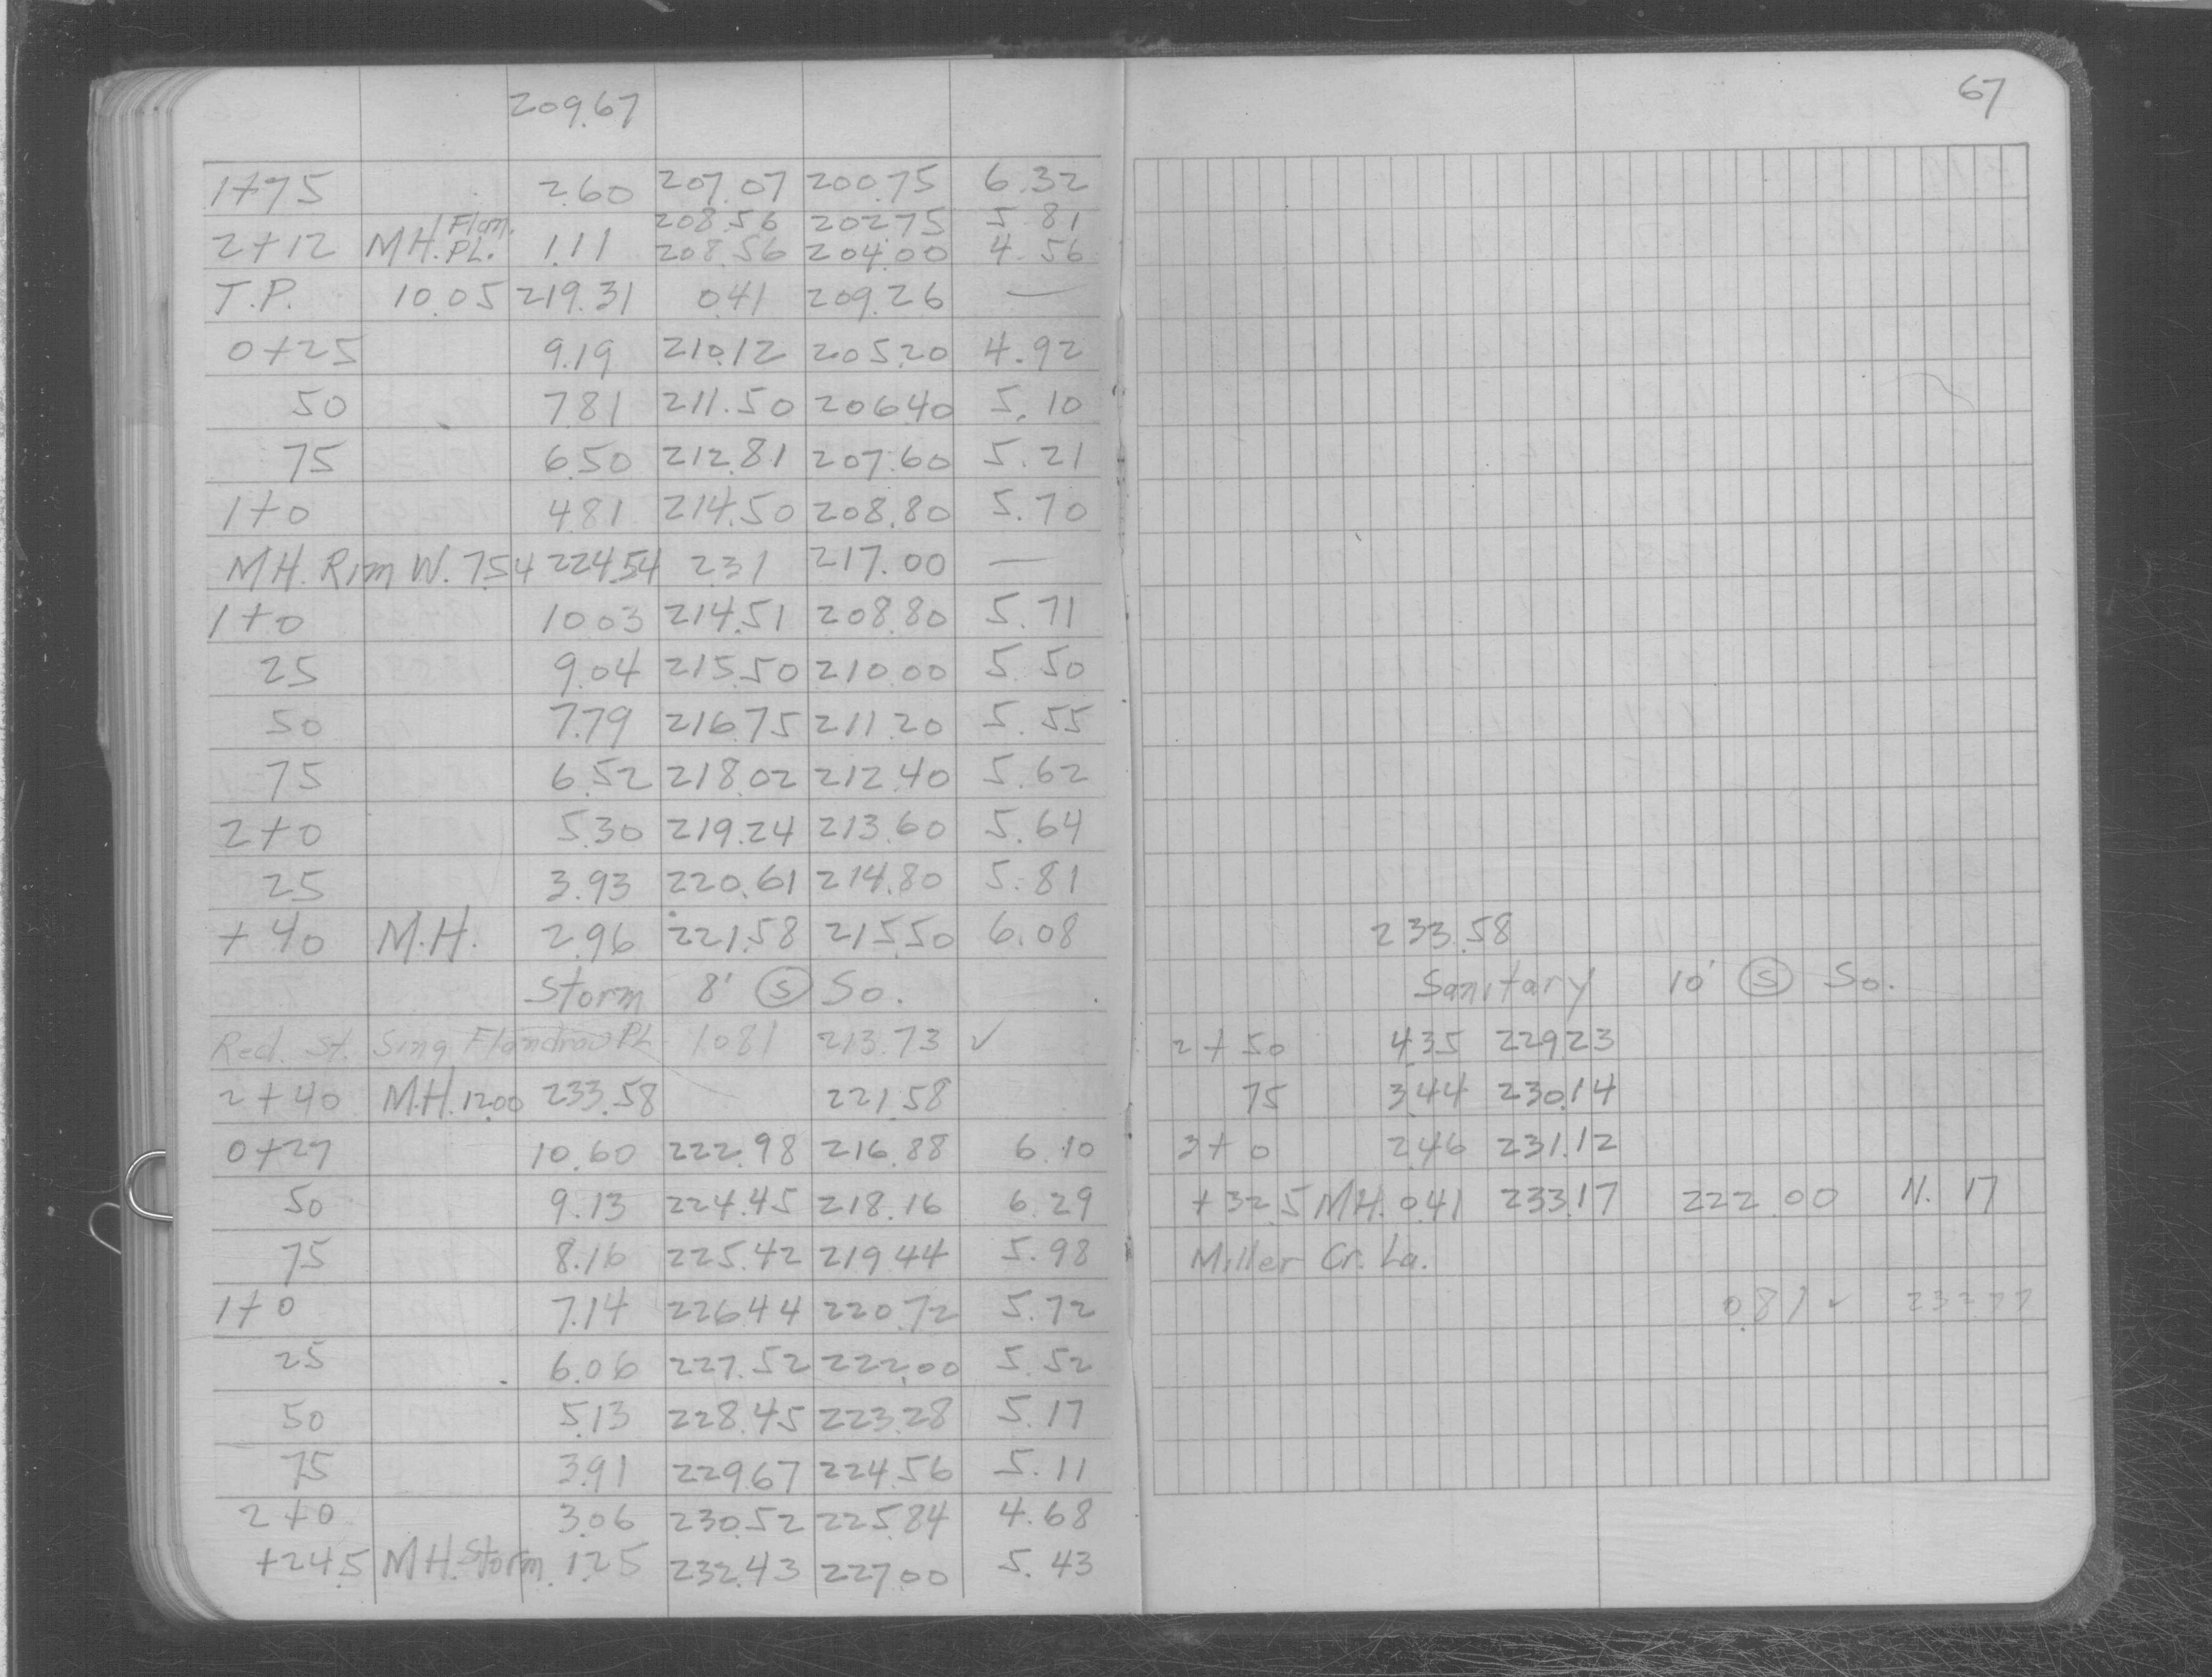 209.67
1+75 2.60 207.07 200.75 6.32
Flan. 208.56 202.75 5.81
2+12 M.H. PL. 1.11 208.56 204.00 4.56
T.P. 10.05 219.31 0.41 209.26 —
0+25 9.19 210.12 205.20 4.92
50 7.81 211.50 206.40 5.10
75 6.50 212.81 207.60 5.21
1+0 4.81 214.50 208.80 5.70
MH. Rim W. 7.54 224.54 2.31 217.00 —
1+0 10.03 214.51 208.80 5.71
25 9.04 215.50 210.00 5.50
50 7.79 216.75 211.20 5.55
75 6.52 218.02 212.40 5.62
2+0 5.30 219.24 213.60 5.64
25 3.93 220.61 214.80 5.81
+40 M.H. 2.96 221.58 215.50 6.08
Storm 8' Ⓢ So.
Red. St. Sing Flandrau PL 10.81 213.73 ✓
2+40 M.H. 12.00 233.58 221.58
0+27 10.60 222.98 216.88 6.10
50 9.13 224.45 218.16 6.29
75 8.16 225.42 219.44 5.98
1+0 7.14 226.44 220.72 5.72
25 6.06 227.52 222.00 5.52
50 5.13 228.45 223.28 5.17
75 3.91 229.67 224.56 5.11
2+0 3.06 230.52 225.84 4.68
+24.5 M.H. Storm 1.25 232.43 227.00 5.43
67
233.58
Sanitary 10' Ⓢ So.
2+50 4.35 229.23
75 3.44 230.14
3+0 2.46 231.12
+32.5 MH. 0.41 233.17 222.00 11.17
Miller Cr. La.
0.81 ✓ 232.77